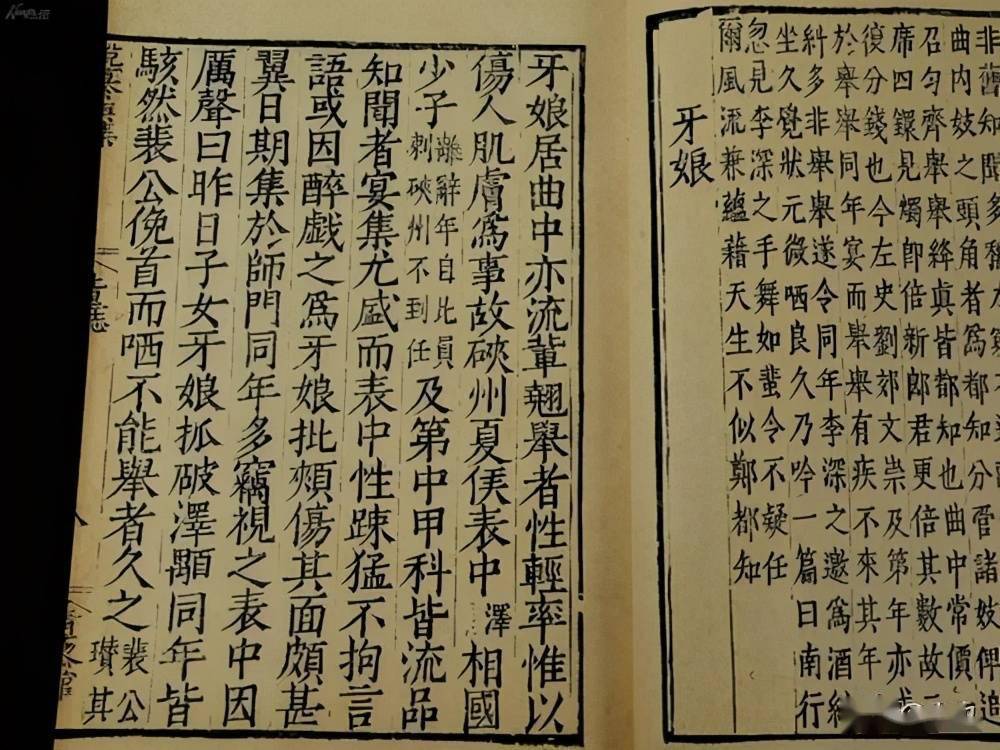 非舊知聞多
曲內妓之頭角者為都知分管諸妓俾追
召勻齊舉舉絳真皆都知也曲中常價
席四鐶見燭即倍新郎君更倍其數故
復分錢也今左史劉郊文崇及第年亦
於舉舉同年宴而舉舉有疾不來其年
糾多非舉舉遂令同年李深之邀為酒糾
坐久覺狀元微哂良久乃吟一篇曰南行
忽見李深之手舞如蜚令不疑任
爾風流兼蘊藉天生不似鄭都知
牙娘
牙娘居曲中亦流輩翹舉者性輕率惟以
傷人肌膚為事故硤州夏侯表中澤相國
少子離辭年自比員刺硤州不到任及第中甲科皆流品
知聞者宴集尤盛而表中性踈猛不拘言
語或因醉戲之為牙娘批頰傷其面頗甚
翼日期集於師門同年多竊視之表中因
厲聲曰昨日子女牙娘抓破澤顋同年皆
駭然裴公俛首而哂不能舉者久之裴公瓚其